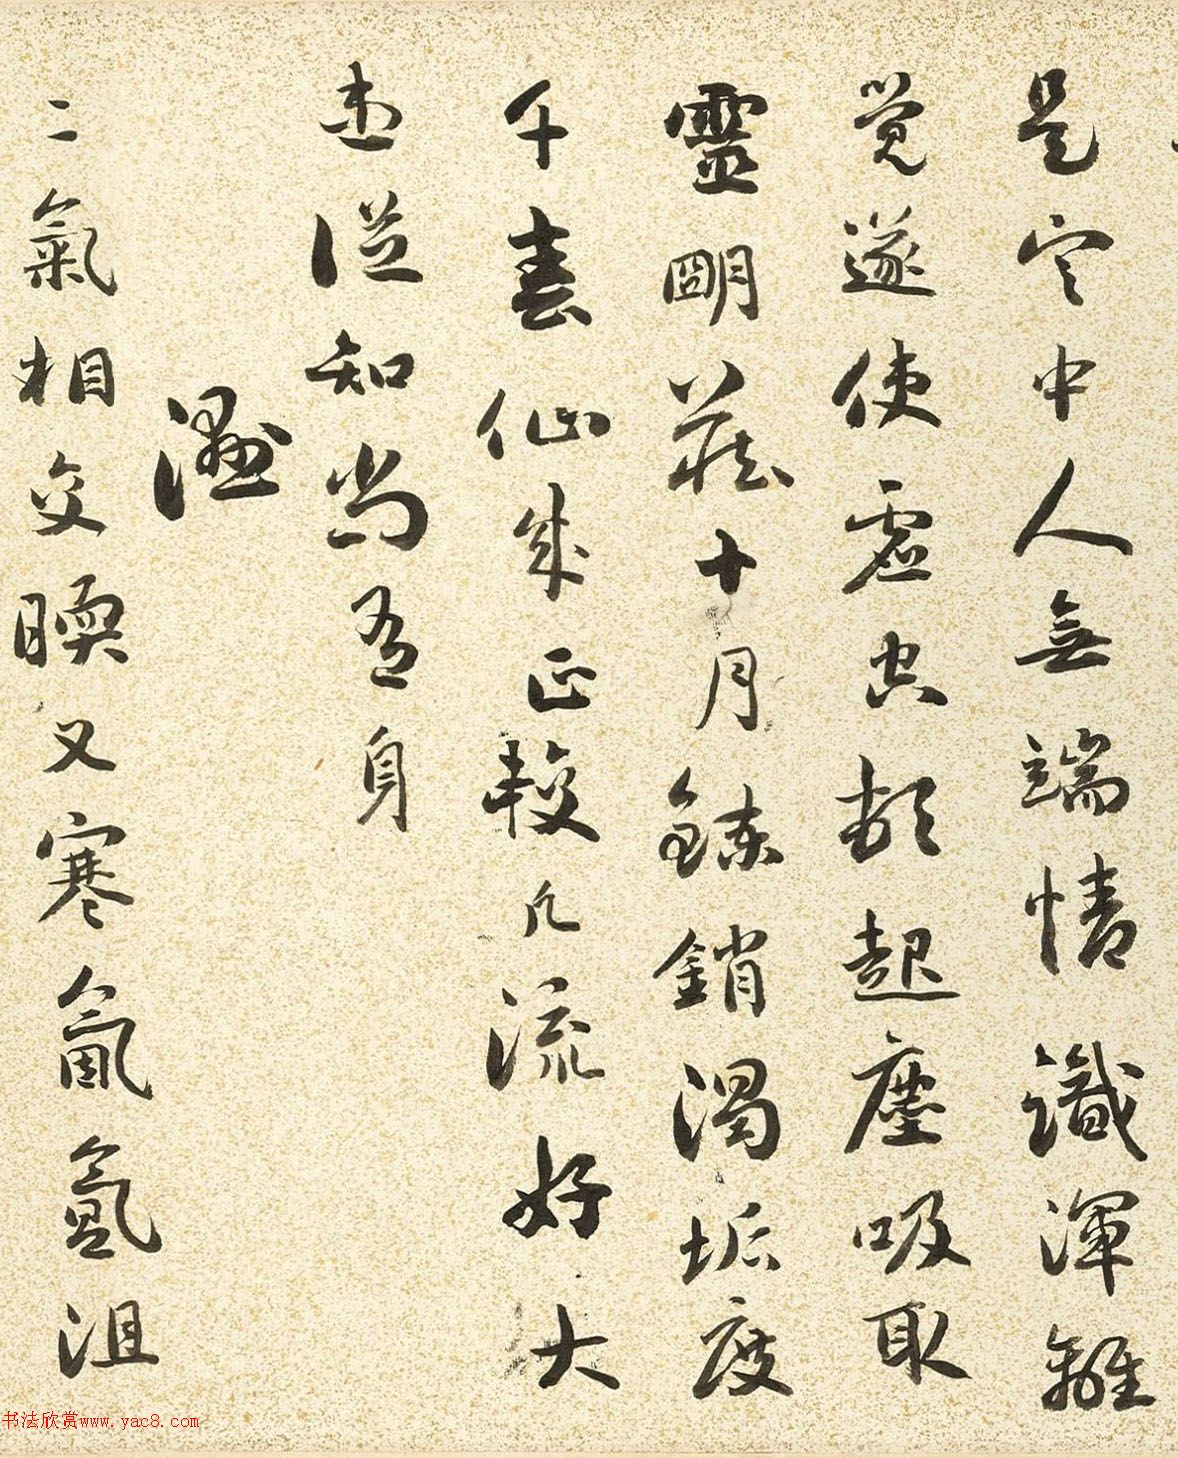 是空中人無端情識渾難
覺遂使虛空頓起塵吸取
靈明藏十月鍊銷濁垢度
千春仙成正較凡流好大
患從知尚有身
濕
二氣相交暵又寒氤氳沮
书法欣赏www.yac8.com